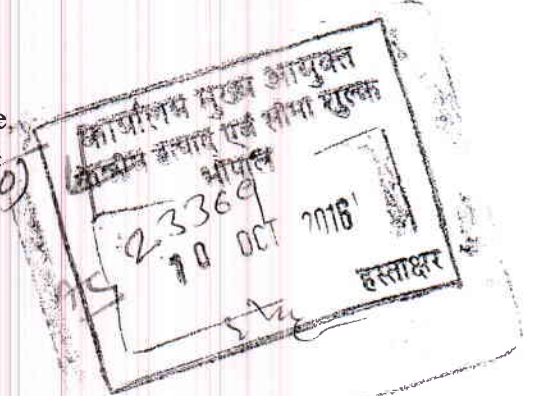 कार्यालय मुख्य आयुक्त
केन्द्रीय उत्पाद एवं सीमा शुल्क
भोपाल
23369
10 OCT 2016
हस्ताक्षर